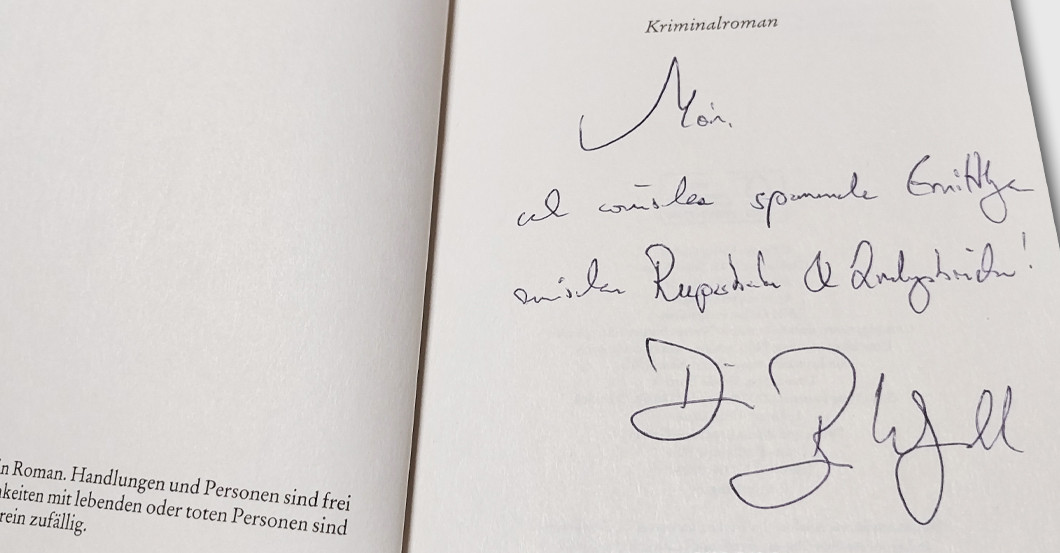 Kriminalroman
Moin,
ich wünsche spannende Ermittlungen
zwischen Reeperbahn & Landungsbrücken!
n Roman. Handlungen und Personen sind frei
keiten mit lebenden oder toten Personen sind
rein zufällig.